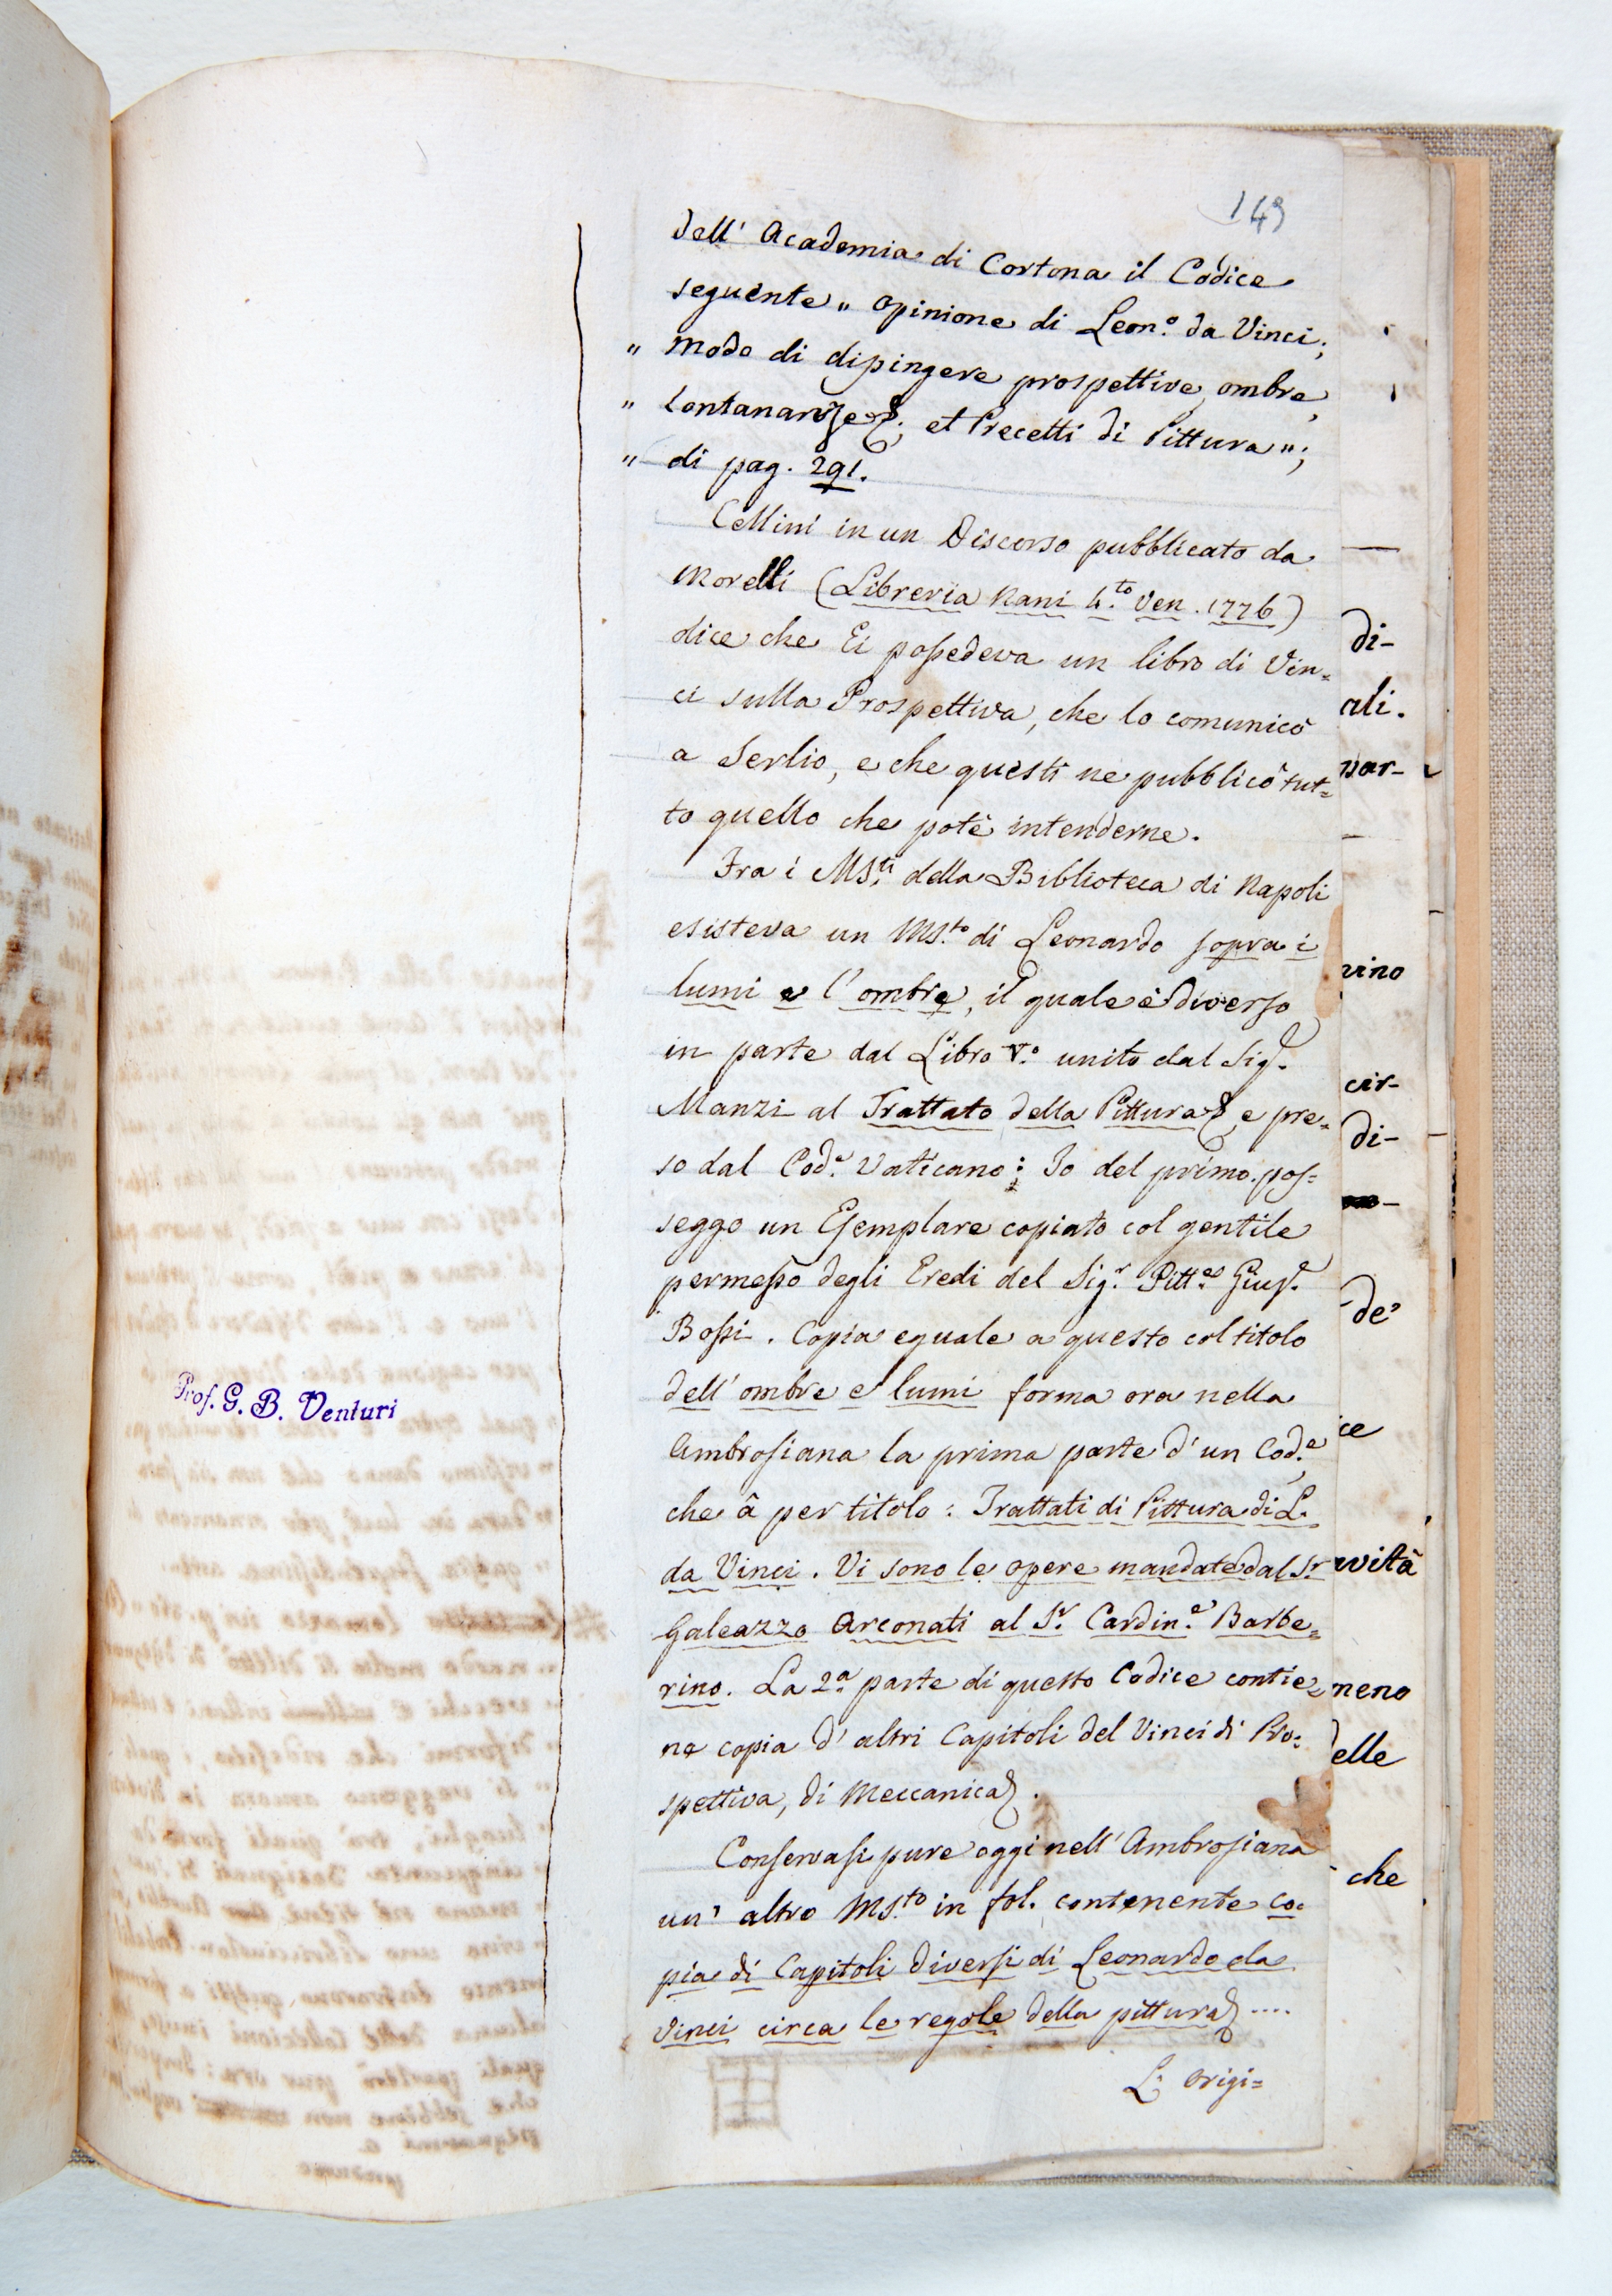 143
dell' Academia di Cortona il Codice
seguente „ Opinione di Leon.º da Vinci;
„ Modo di dipingere prospettive, ombre,
„ Lontananze &; et Precetti di Pittura „;
„ di pag. 291.
Cellini in un Discorso pubblicato da
Morelli (Libreria Nani 4.to Ven. 1776)
dice che Ei possedeva un libro di Vin=
ci sulla Prospettiva, che lo comunicò
a Serlio, e che questi ne pubblicò tut=
to quello che potè intenderne.
Fra i MS.ti della Biblioteca di Napoli
esisteva un MS.to di Leonardo sopra i
lumi e l'ombre, il quale è diverso
in parte dal Libro V.º unito dal Sig.r
Manzi al Trattato della Pittura & e pre=
so dal Cod.e Vaticano: Io del primo pos=
seggo un Esemplare copiato col gentile
permesso degli Eredi del Sig.r Pitt.e Gius.e
Bossi. Copia eguale a questo col titolo
dell' ombre e lumi forma ora nella
Ambrosiana la prima parte d'un Cod.e,
che à per titolo: Trattati di Pittura di L.
da Vinci. Vi sono le opere mandate dal S.r
Galeazzo Arconati al S.r Cardin.e Barbe=
rino. La 2.a parte di questo Codice contie=
ne copia d'altri Capitoli del Vinci di Pro=
spettiva, di Meccanica &.
Conservasi pure oggi nell'Ambrosiana
un' altro MS.to in fol. contenente co=
pia di Capitoli diversi di Leonardo da
Vinci circa le regole della pittura & ....
L' origi=
Prof. G. B. Venturi
di-
ali.
nar-
nino
cir-
di-
de'
ice
vità
meno
delle
che